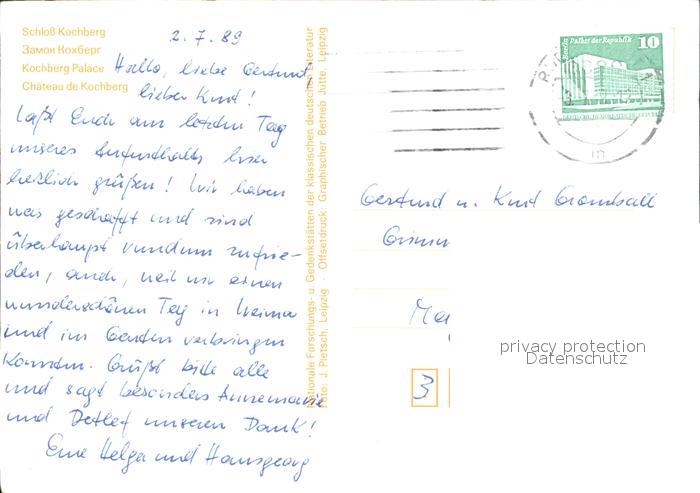 Schloß Kochberg
Замок Кохберг
Kochberg Palace
Château de Kochberg
2.7.89
Hallo, liebe Gertrud,
lieber Kurt!
Laßt Euch am letzten Tag
unseres Aufenthalts hier
herzlich grüßen! Wir haben
was geschafft und sind
überhaupt rundum zufrie-
den, auch, weil wir einen
wunderschönen Tag in Weimar
und im Garten verbringen
konnten. Grüßt bitte alle
und sagt besonders Annemarie
und Detlef unseren Dank!
Eure Helga und Hansgeorg
Nationale Forschungs- u. Gedenkstätten der klassischen deutschen Literatur
Foto: J. Pietsch, Leipzig · Offsetdruck: Graphischer Betrieb Jütte, Leipzig
Berlin Palast der Republik
10
Gertrud u. Kurt
3
privacy protection
Datenschutz